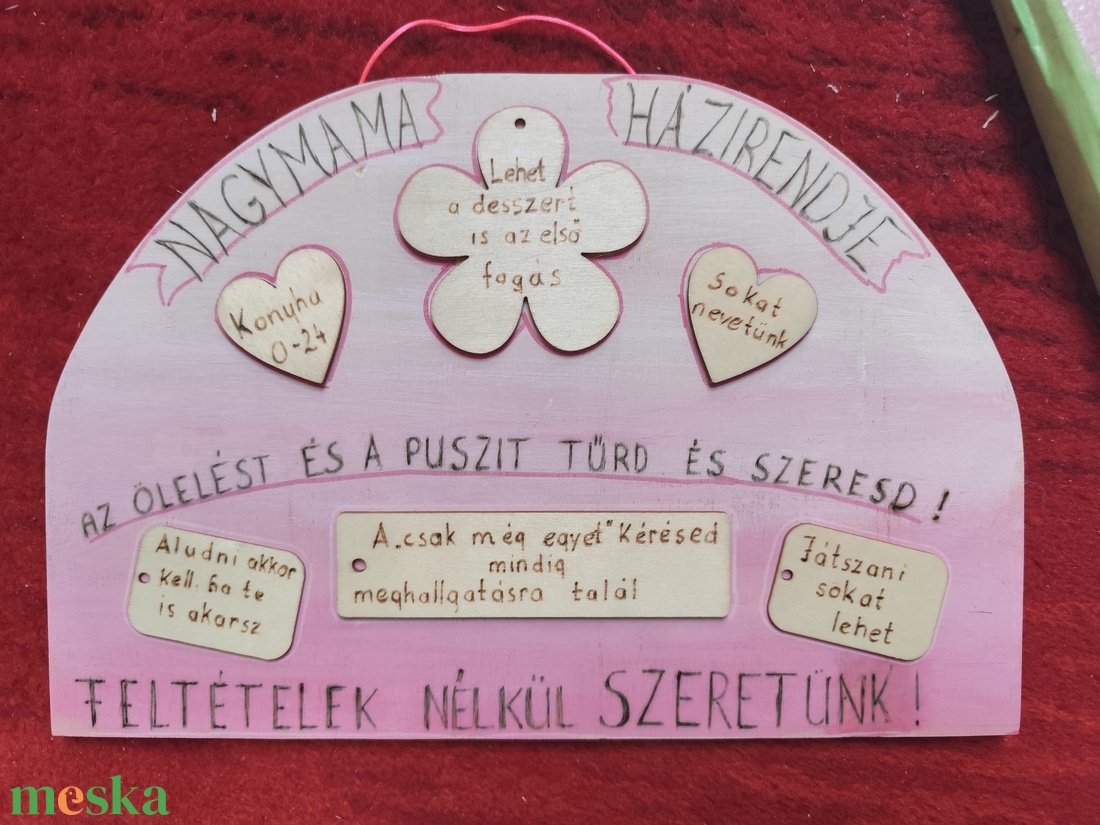 NAGYMAMA HÁZIRENDJE
Lehet
a desszert
is az első
fogás
Konyha
0-24
Sokat
nevetünk
AZ ÖLELÉST ÉS A PUSZIT TŰRD ÉS SZERESD!
Aludni akkor
kell, ha te
is akarsz
A „csak még egyet" Kérésed
mindig
meghallgatásra talál
Játszani
sokat
lehet
FELTÉTELEK NÉLKÜL SZERETÜNK!
meska